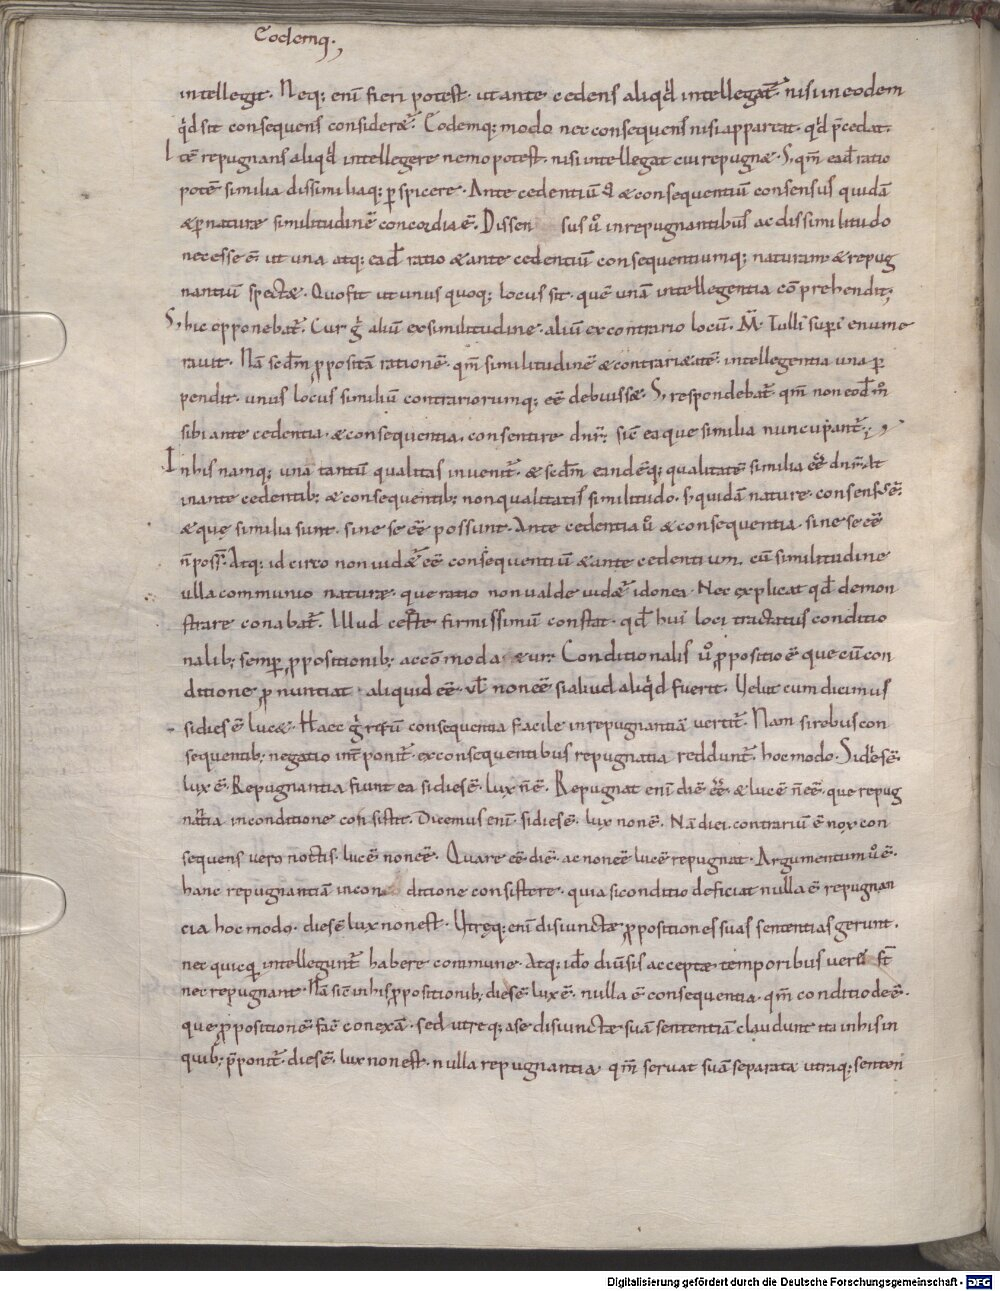 Eodemq;
intellegit. Neq; eni fieri potest. ut ante cedens aliqd intellegat. nisi in eodem
qd sit consequens consideret. Eodemq; modo nec consequens nisi appareat. qd pcedat.
Ite repugnans aliqd intellegere nemo potest. nisi intellegat cui repugnæ. S; qm ead ratio
pote similia dissimiliaq; pspicere. Ante cedentiu & consequentiu consensus quida
& p naturæ similitudine concordia e. Dissen sus u in repugnantibus ac dissimilitudo
necesse e ut una atq; ead ratio & ante cedentiu consequentiumq; naturam & repug
nantiu spectæ. Quo fit ut unus quoq; locus sit. que una intellegentia co prehendit.
S; hic opponebat. Cur g aliu ex similitudine. aliu ex contrario locu. M. Tulli supi enume
ravit. Na scdm ppositā rationē. qm similitudinē & contrarietatē intellegentia una p
pendit. unus locus similiū contrariorumq; eē debuissæ. S; respondebat qm non eod m
sibi ante cedentia. & consequentia. consentire dnr; sic ea que similia nuncupant;
In his namq; unā tantū qualitas invenit. & scdm eandēq; qualitatē similia eē dnr. At
in ante cedentib; & consequentib; non qualitatis similitudo. s; quidā nature consensus ē.
& quę similia sunt. sine se eē possunt. Ante cedentia u & consequentia. sine se eē
ñ poss. Atq; id circo non videt eē consequentiū & ante cedentium. cū similitudine
ulla communio naturæ. que ratio non valde videt idonea. Nec explicat qd demon
strare conabat. Illud certe firmissimū constat. qd hui loci tractatus conditio
nalib; semp ppositionib; accōmoda &ur. Conditionalis u ppositio ē que cū con
ditione pnuntiat. aliquid eē. vl non eē si aliud aliqd fuerit. Velut cum dicimus
si dies ē lucæ. Haec g rerū consequentia facile in repugnantiā vertit. Nam si rebus con
sequentib; negatio int ponit. ex consequentibus repugnatia reddunt. hoc modo. Si dies ē.
lux ē. Repugnantia fiunt ea si dies ē. lux ñ ē. Repugnat eni diē eē. & lucē ñ eē. que repug
natia in conditione consistit. Dicemus eni. si dies ē. lux non ē. Nā diei contrariū ē nox con
sequens vero noctis. lucē non eē. Quare eē diē. ac non eē lucē repugnat. Argumentum u ē.
hanc repugnantiā in con ditione consistere. quia si conditio deficiat nulla ē repugnan
cia hoc modo. dies ē lux non est. Utręq; eni disiunctæ ppositiones suas sententias gerunt.
nec quicq intellegunt habere commune. Atq; ido divsis acceptæ temporibus vere st
nec repugnant. Nā sic in his ppositionib; dies ē lux ē. nulla ē consequentia. qm conditio deē.
que ppositionē fac conexā. sed utreq; a se disiunctæ suā sententiā claudunt ita in his in
quib; pponit. dies ē. lux non est. nulla repugnantia. qm servat suā separata utraq; senten
Digitalisierung gefördert durch die Deutsche Forschungsgemeinschaft - DFG